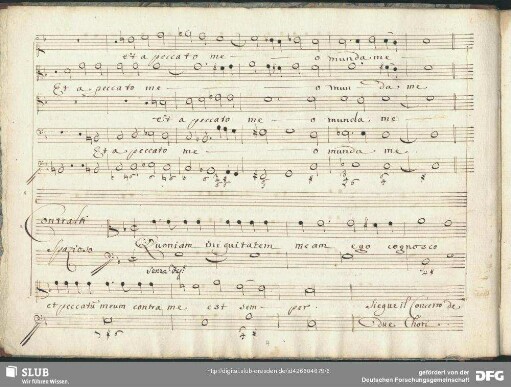 et a peccato me o munda me
Et a peccato me o mun da me
et a peccato me o munda me
Et a peccato me o munda me
Contralti
Spazioso
Quoniam iniquitatem meam ego cognosco
Senza
et peccatū meum contra me est sem per. Siegue il Concerto de
due Chori
SLUB
Wir führen Wissen.
gefördert von der
Deutschen Forschungsgemeinschaft
DFG